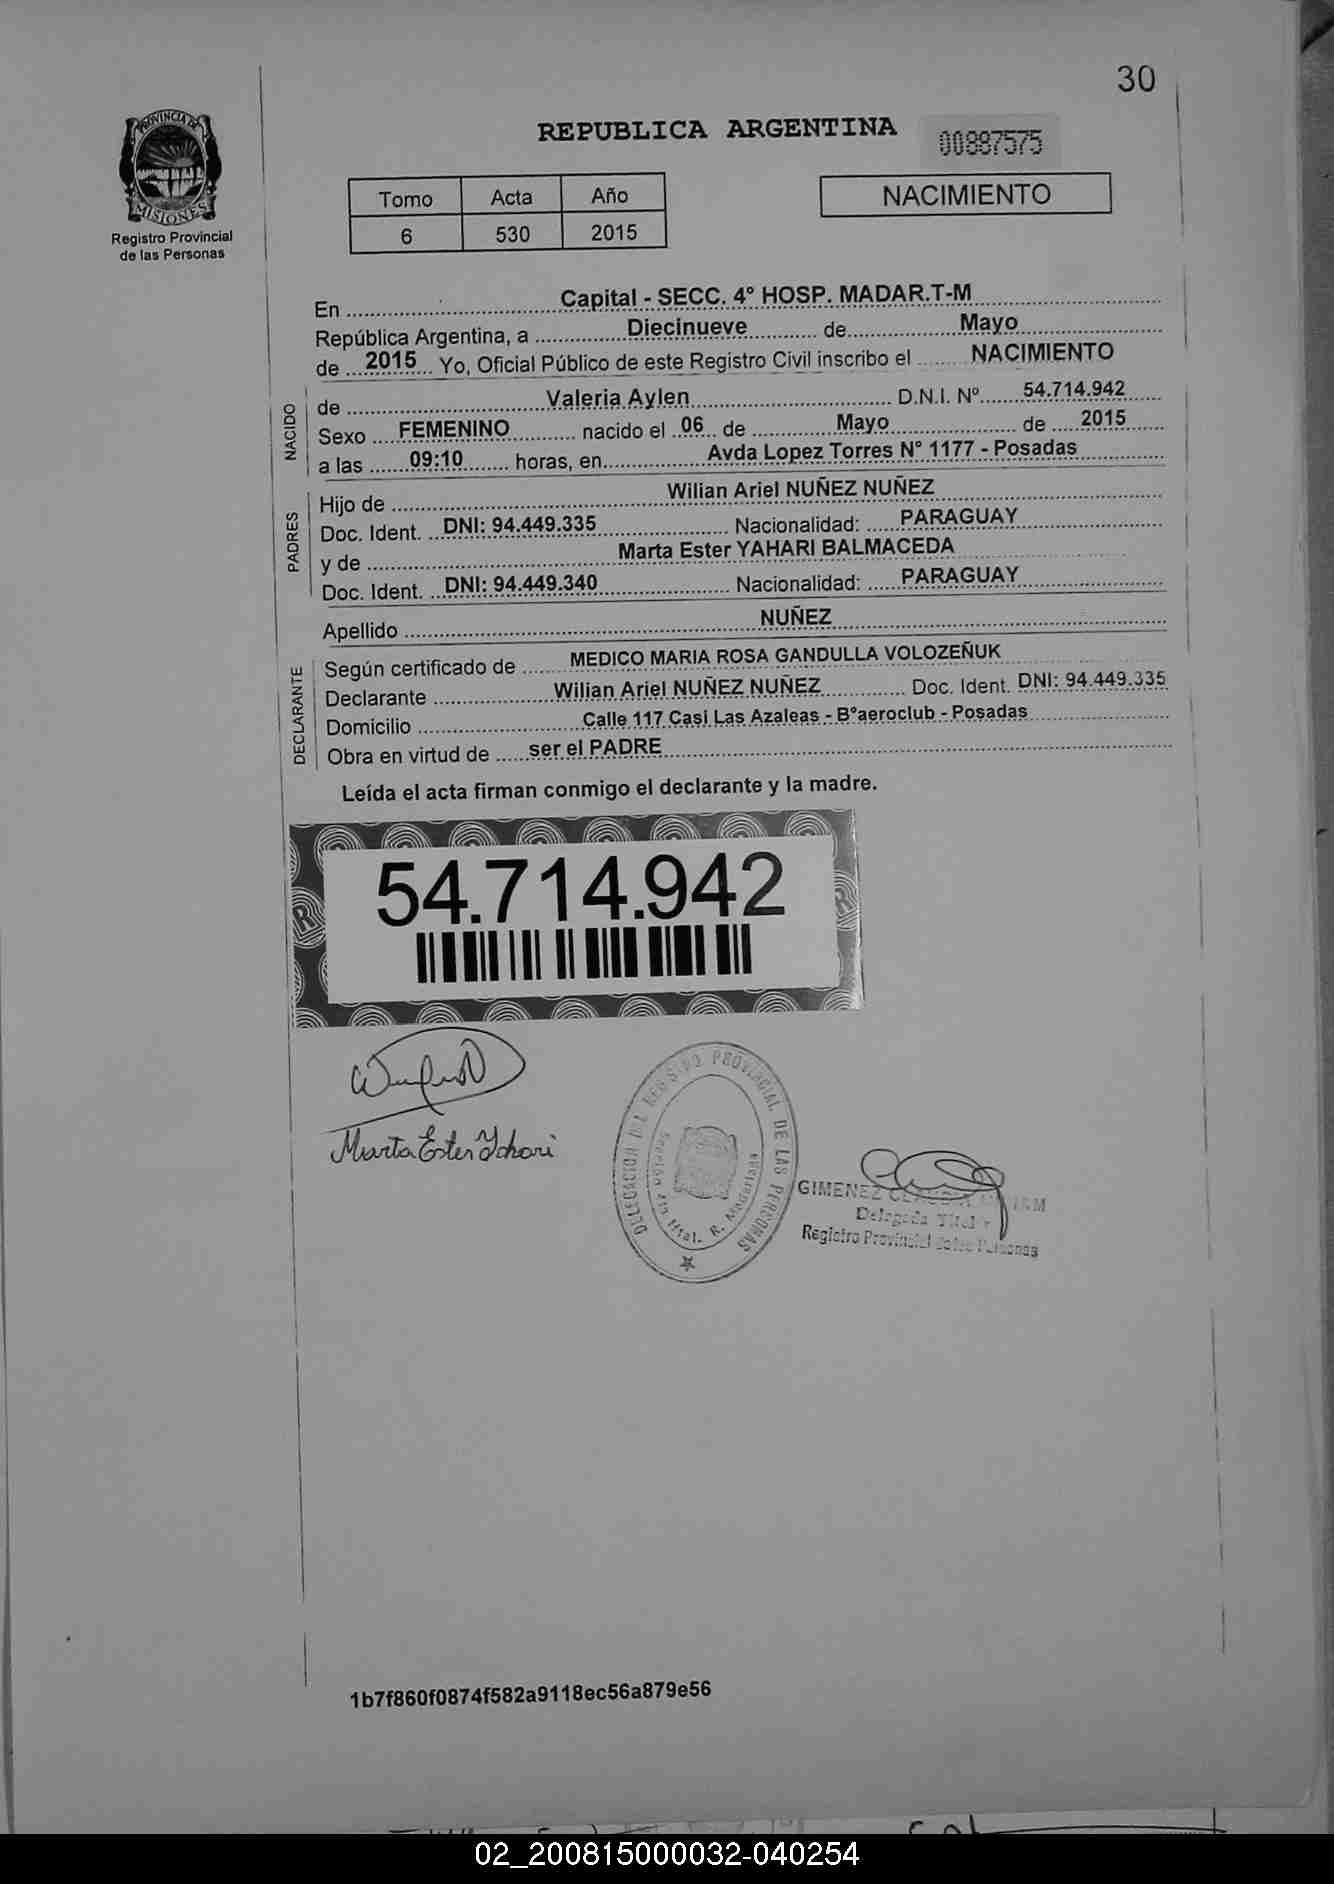 30
REPUBLICA ARGENTINA
00887575
PROVINCIA DE
MISIONES
Registro Provincial
de las Personas
Tomo Acta Año
6 530 2015
NACIMIENTO
En Capital - SECC. 4° HOSP. MADAR.T-M
República Argentina, a Diecinueve de Mayo
de 2015 Yo, Oficial Público de este Registro Civil inscribo el NACIMIENTO
NACIDO
de Valeria Aylen D.N.I. Nº 54.714.942
Sexo FEMENINO nacido el 06 de Mayo de 2015
a las 09:10 horas, en Avda Lopez Torres N° 1177 - Posadas
PADRES
Hijo de Wilian Ariel NUÑEZ NUÑEZ
Doc. Ident. DNI: 94.449.335 Nacionalidad: PARAGUAY
y de Marta Ester YAHARI BALMACEDA
Doc. Ident. DNI: 94.449.340 Nacionalidad: PARAGUAY
Apellido NUÑEZ
DECLARANTE
Según certificado de MEDICO MARIA ROSA GANDULLA VOLOZEÑUK
Declarante Wilian Ariel NUÑEZ NUÑEZ Doc. Ident. DNI: 94.449.335
Domicilio Calle 117 Casi Las Azaleas - B°aeroclub - Posadas
Obra en virtud de ser el PADRE
Leída el acta firman conmigo el declarante y la madre.
54.714.942
Marta Ester Yahari
DELEGACION DEL REGISTRO PROVINCIAL DE LAS PERSONAS
Sección 4ta Htal. R. Madariaga
GIMENEZ
Delegada
Registro Provincial de las Personas
1b7f860f0874f582a9118ec56a879e56
02_200815000032-040254